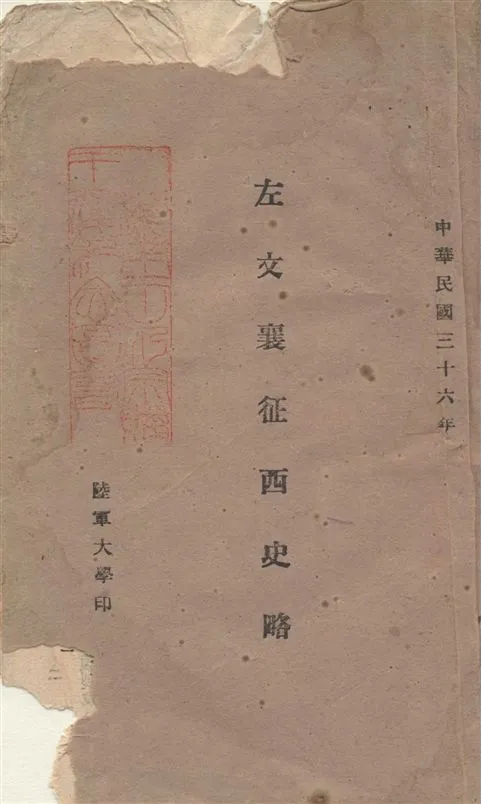 中華民國三十六年
左文襄征西史略
陸軍大學印